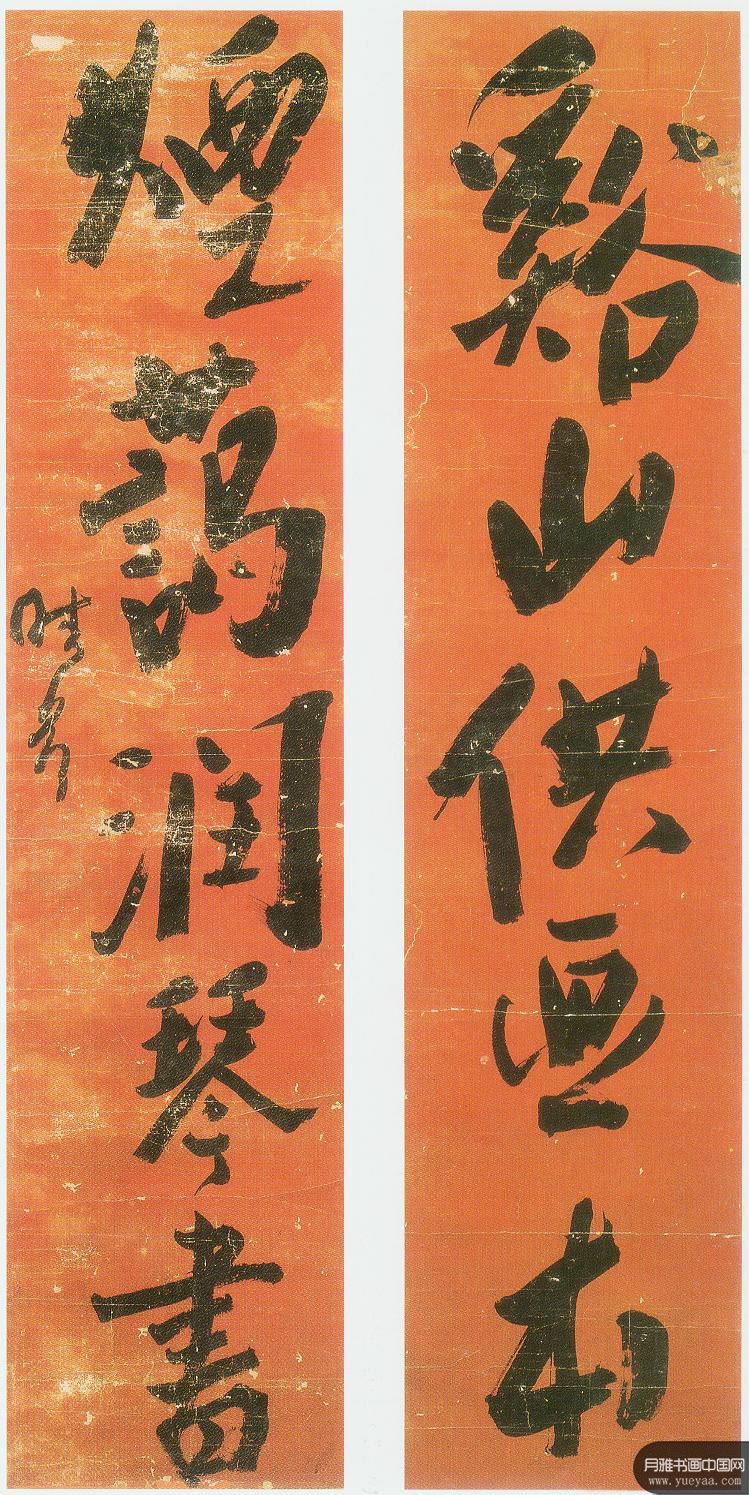 谿山供画本
煙藹润琴書
月雅书画中国网
www.yueyaa.com